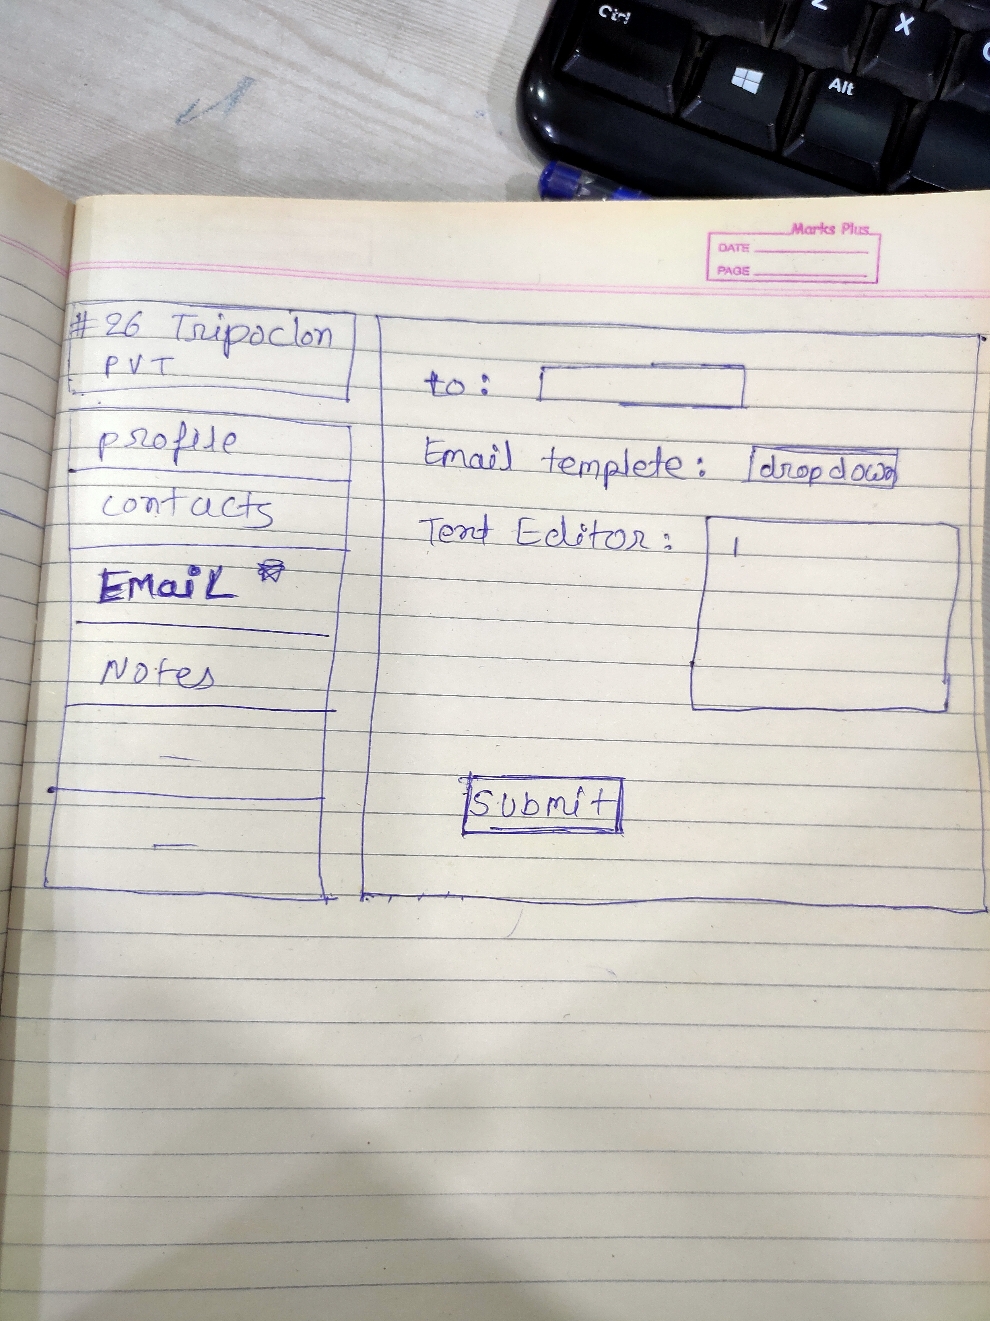 Ctrl
Z
X
Alt
Marks Plus
DATE
PAGE
#26 Tripoclon
PVT
profile
contacts
EMaiL
Notes
to:
Email templete: dropdown
Text Editor:
Submit